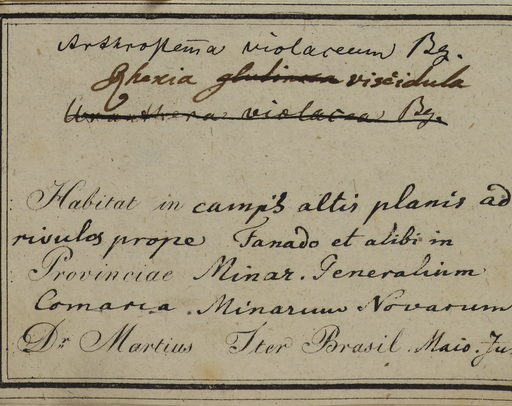 Arthrostēma violaceum Bg.
Rhexia glutinosa viscidula
Uranthera violacea Bg.
Habitat in campis altis planis ad
rivulos prope Fanado et alibi in
Provinciae Minar. Generalium
Comarca . Minarum Novarum
Dr Martius Iter Brasil . Maio. Ju